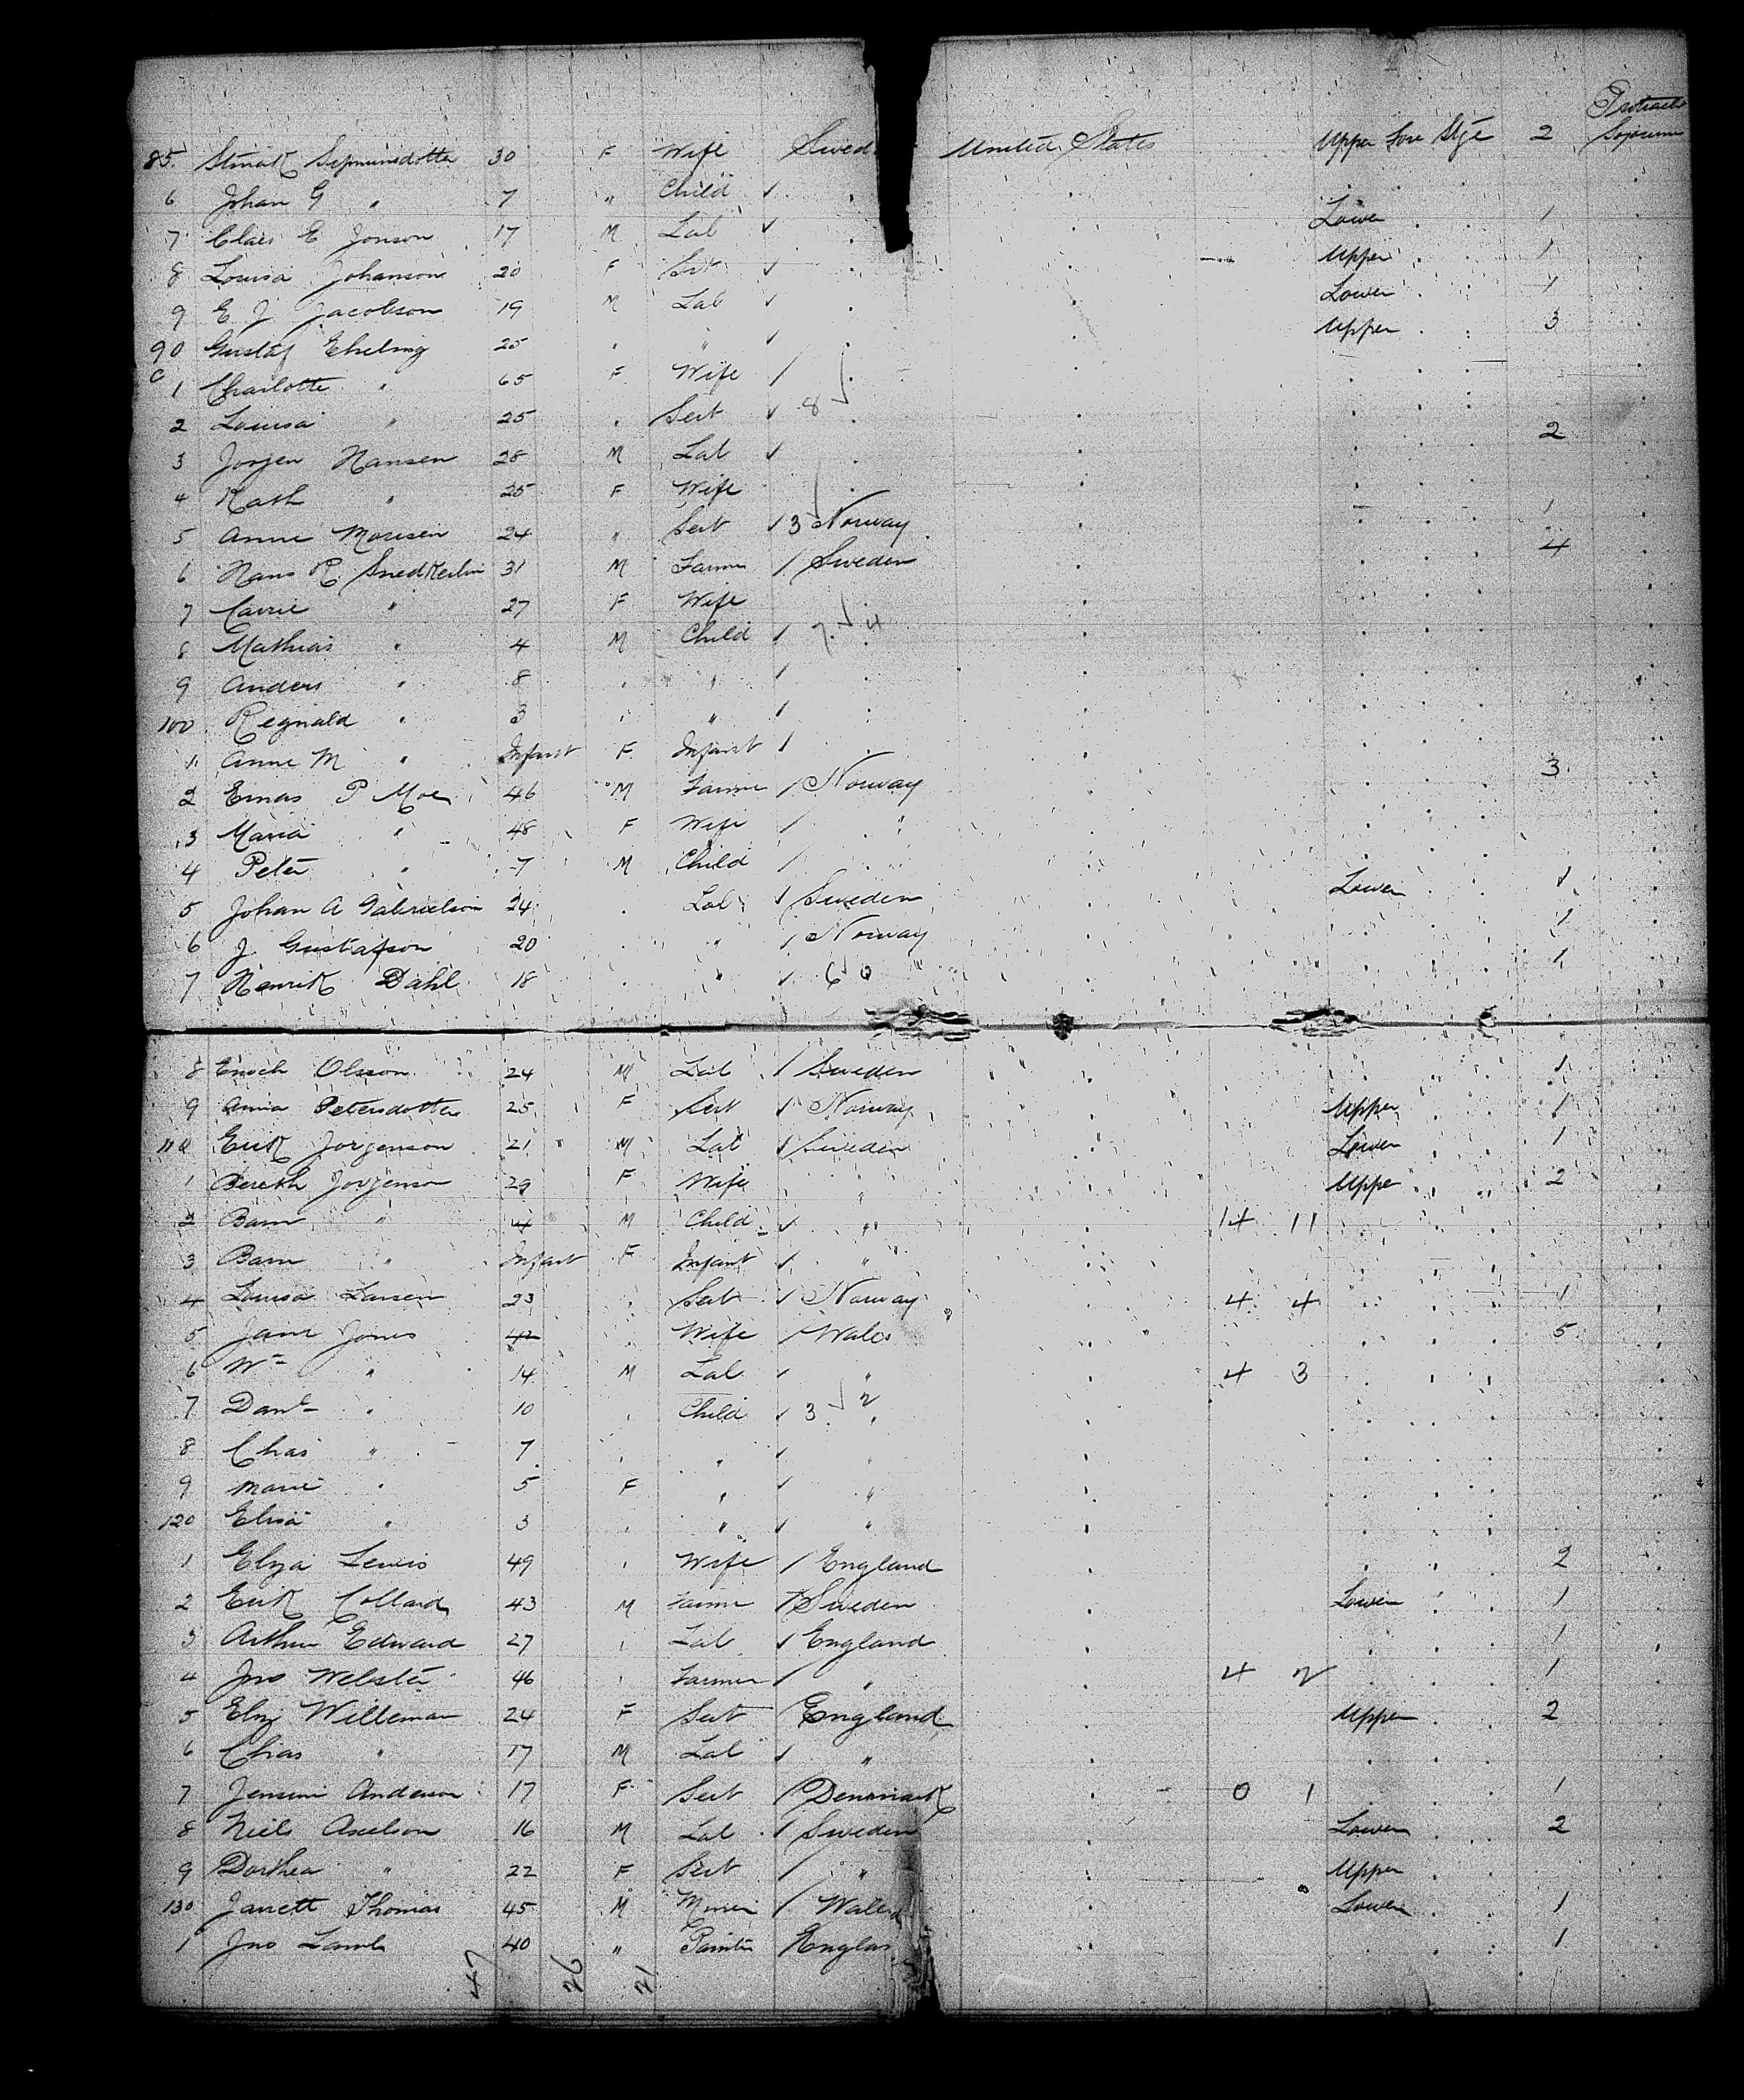 Protracted
85. Stinak Sigmundsdotter 30 F Wife Swed United States Upper Fore Stge 2 Sojourn
6 Johan G " 7 " Child
7 Claes E Jonson 17 M Lab Lower 1
8 Louisa Johanson 20 F Sert Upper 1
9 E J Jacobson 19 M Lab Lower 1
90 Gustaf Eheling 25 " Upper 3
1 Charlotte " 65 F Wife
2 Louisa " 25 Sert 8
3 Jorjen Hansen 28 M Lab 2
4 Kath " 25 F Wife
5 Anne Monsen 24 " Sert 3 Norway 1
6 Hans K. 31 M Farmer Sweden 4
7 Carrie " 27 F Wife
8 Mathias " 4 M Child 7 4
9 Anders " 8 "
100 Regnald " 3 "
1 Anne M " Infant F Infant
2 Emas P Moe 46 M Farmer Norway 3
3 Maria " 48 F Wife "
4 Peter " 7 M Child
5 Johan A Gabrielson 24 Lab Sweden Lower 1
6 J Gustafson 20 " Norway 1
7 Henrik Dahl 18 " 6 0 1
8 Enoch Olsson 24 M Lab Sweden 1
9 Anna Petersdotter 25 F Sert Norway Upper 1
110 Erik Jorgenson 21 M Lab Sweden Lower 1
1 Bereth Jorjenson 29 F Wife " Upper 2
2 Barn " 4 M Child " 14 11
3 Barn " Infant F Infant "
4 Louisa Larsen 23 Sert Norway 4 4 1
5 Jane Jones 42 Wife Wales 5
6 Wm " 14 M Lab " 4 3
7 Danl " 10 Child 3 2 "
8 Chas " 7 " "
9 Marie " 5 F " "
120 Elisa " 3 " "
1 Elyza Lewis 49 Wife England 2
2 Erik Collard 43 M Farmer Sweden Lower 1
3 Arthur Edward 27 Lab England 1
4 Jno Webster 46 Farmer " 4 2 1
5 Eliz Willeman 24 F Sert England Upper 2
6 Chas " 17 M Lab "
7 Jensine Anderson 17 F Sert Denmark 0 1 1
8 Niels Axelson 16 M Lab Sweden Lower 2
9 Dorthea " 22 F Sert " Upper
130 Jarrett Thomas 45 M Miner Wales Lower 1
1 Jno Lamb 40 " Painter Englan 1
47 26 21